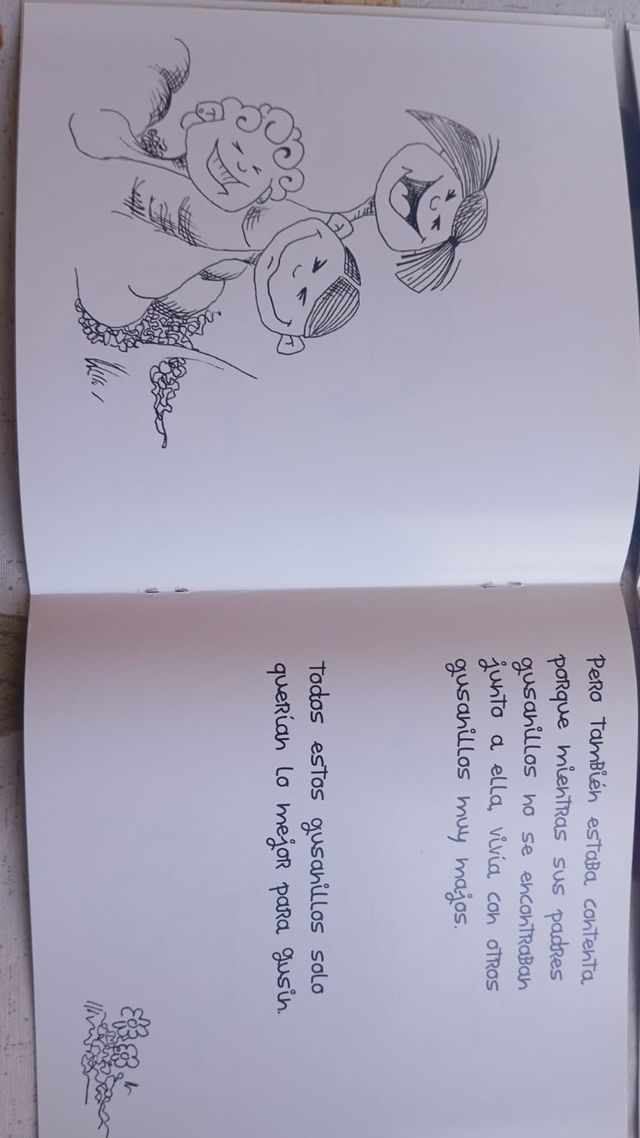 Pero también estaba contenta
porque mientras sus padres
gusanillos no se encontraban
junto a ella, vivía con otros
gusanillos muy majos.
Todos estos gusanillos solo
querían lo mejor para gusin.